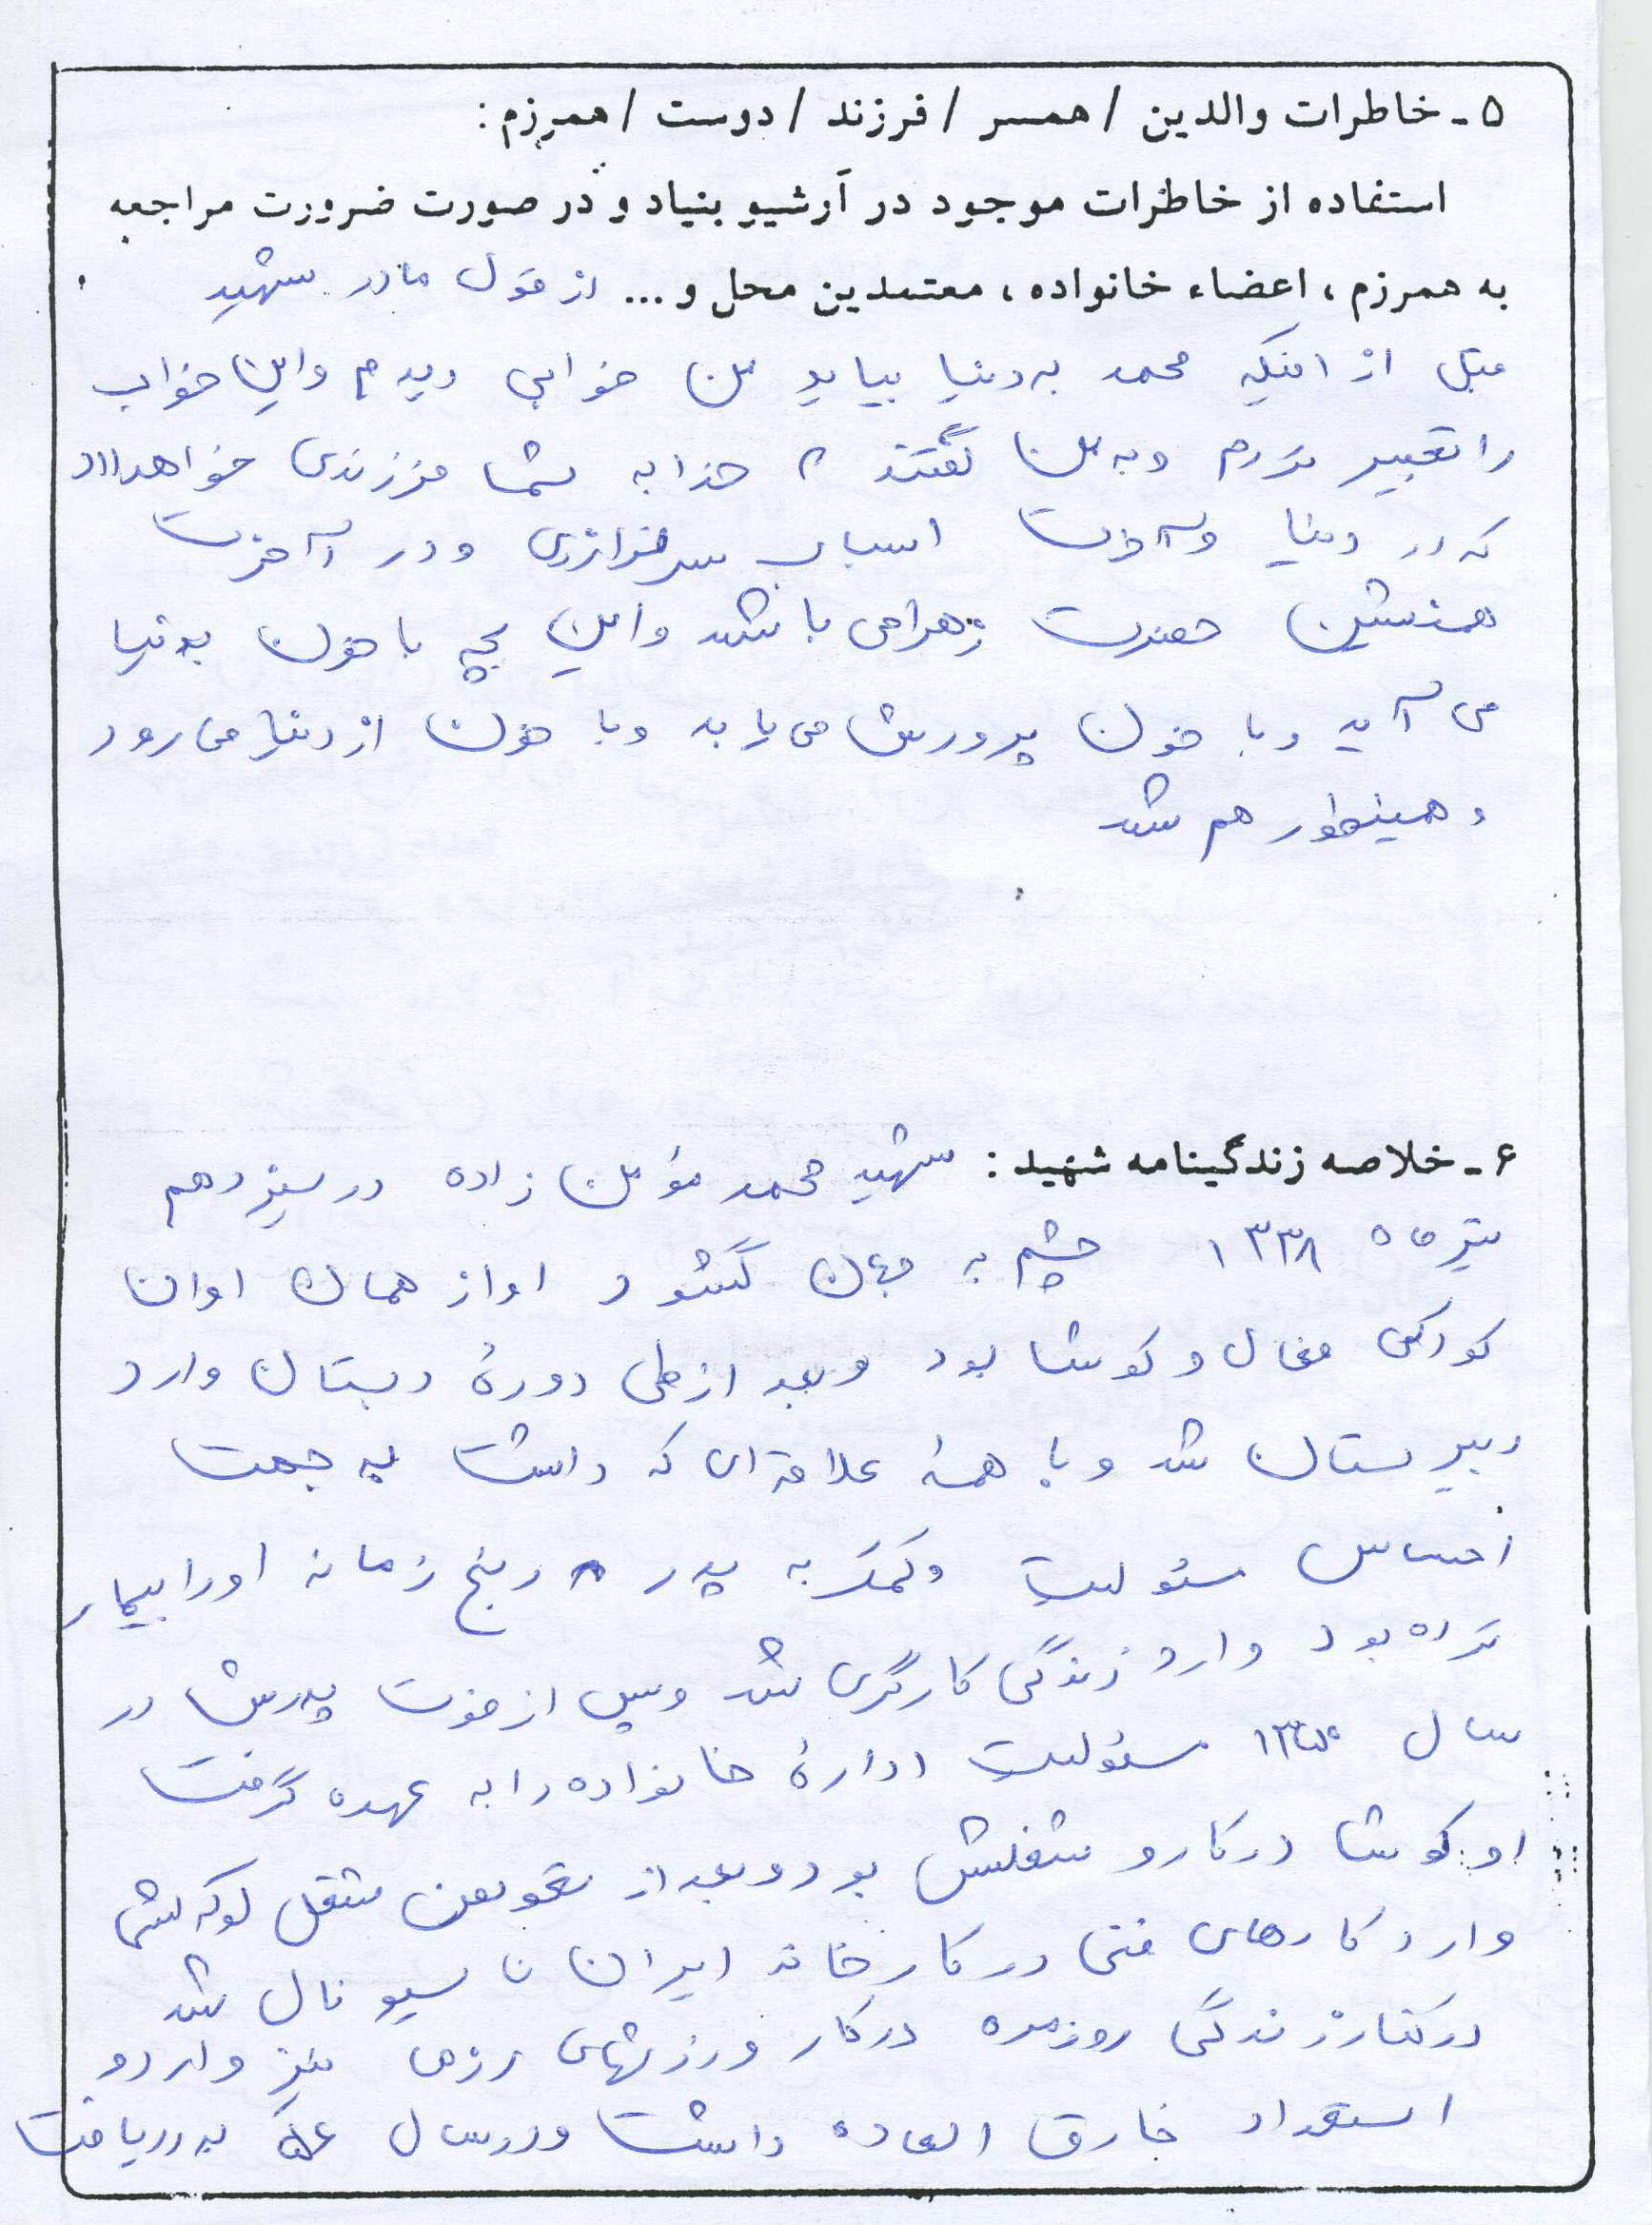 ۵ - خاطرات والدین / همسر / فرزند / دوست / همرزم :
استفاده از خاطرات موجود در آرشیو بنیاد و در صورت ضرورت مراجعه
به همرزم ، اعضاء خانواده ، معتمدین محل و ... از قول مادر شهید
قبل از اینکه محمد به دنیا بیاید من خوابی دیدم و این خواب
را تعبیر کردم و به من گفتند خدا به شما فرزندی خواهد داد
که در دنیا و آخرت اسباب سرفرازی و در آخرت
همنشین حضرت زهرا می باشد و این بچه با خون بدنیا
می آید و با خون پرورش می یابد و با خون از دنیا می رود
و همینطور هم شد
۶ - خلاصه زندگینامه شهید : شهید محمد مؤمن زاده در سیزدهم
تیرماه ۱۳۳۸ چشم به جهان گشود او از همان اوان
کودکی فعال و کوشا بود و بعد از طی دورهٔ دبستان وارد
دبیرستان شد و با همهٔ علاقه ای که داشت به جهت
احساس مسئولیت و کمک به پدر رنج زمانه او را بیمار
کرده بود وارد زندگی کارگری شد و پس از فوت پدرش در
سال مسئولیت ادارهٔ خانواده را به عهده گرفت
او کوشا در کار و شغلش بود و بعد از تعویض شغل
وارد کارهای فنی در کارخانه ایران ناسیونال شد
در کنار زندگی روزمره در کار ورزشهای رزمی نیز وارد و
استعداد خارق العاده داشت و در سال به دریافت